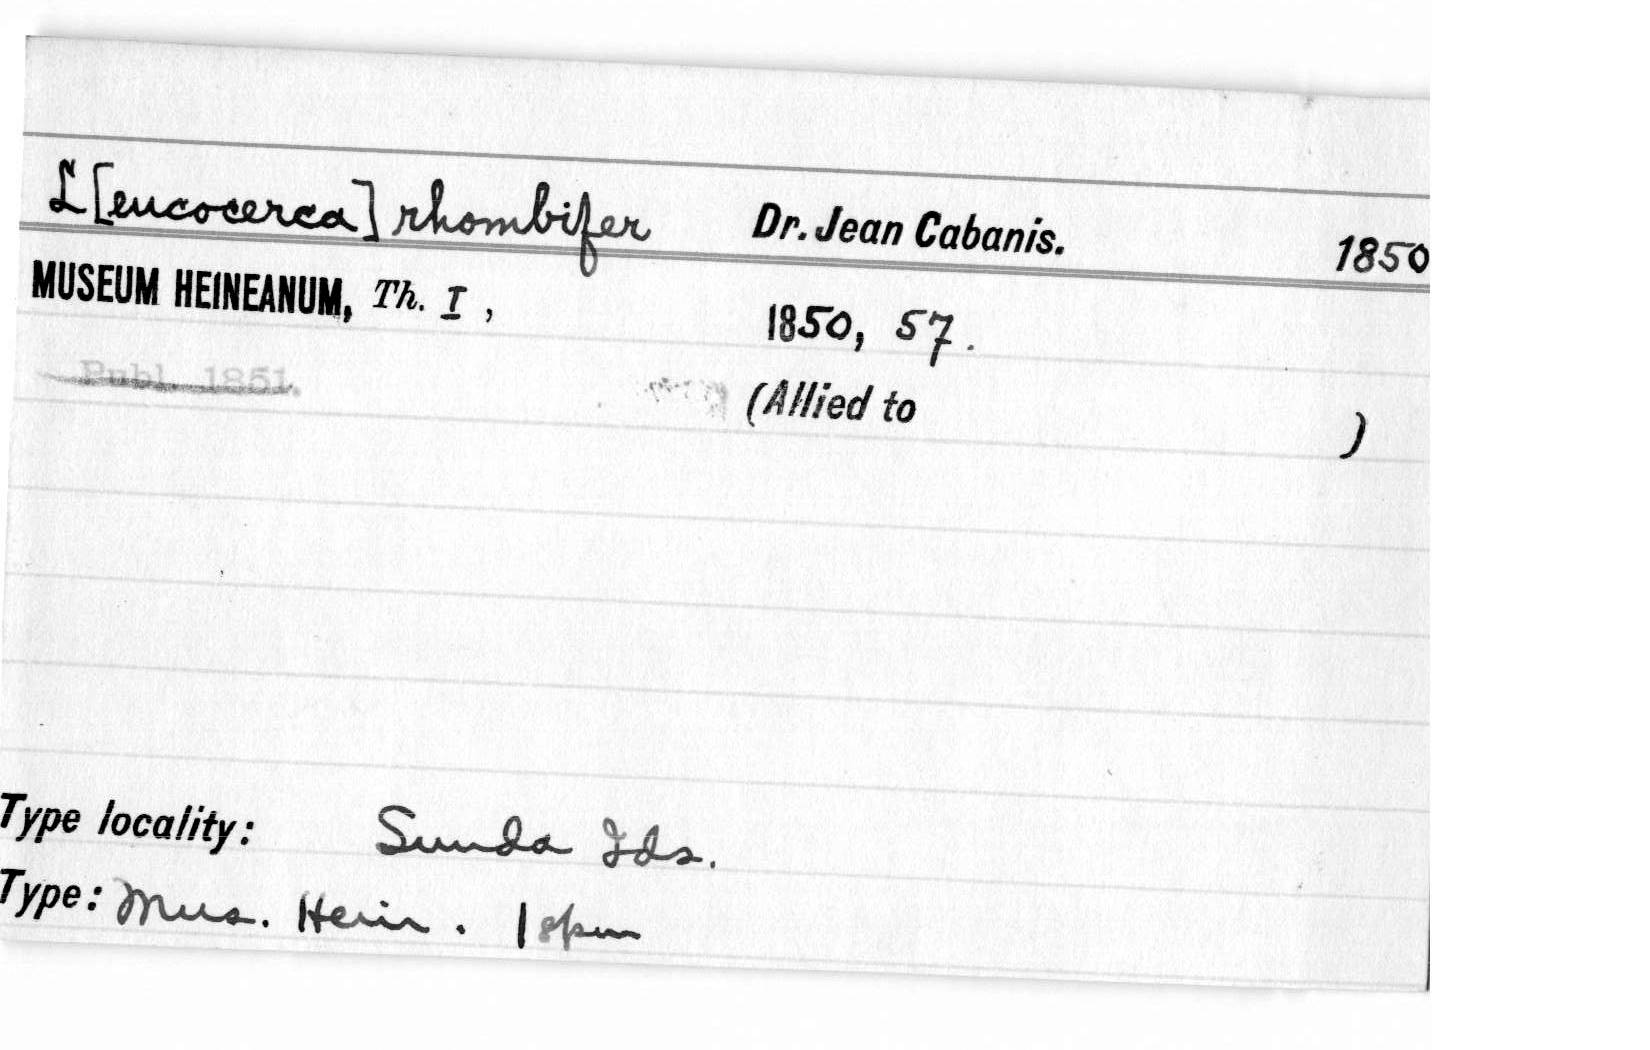 L[eucocerca] rhombifer Dr. Jean Cabanis. 1850
MUSEUM HEINEANUM, Th. I, 1850, 57.
Publ. 1851.
(Allied to )
Type locality: Sunda Ids.
Type: Mus. Hein. 1 spm